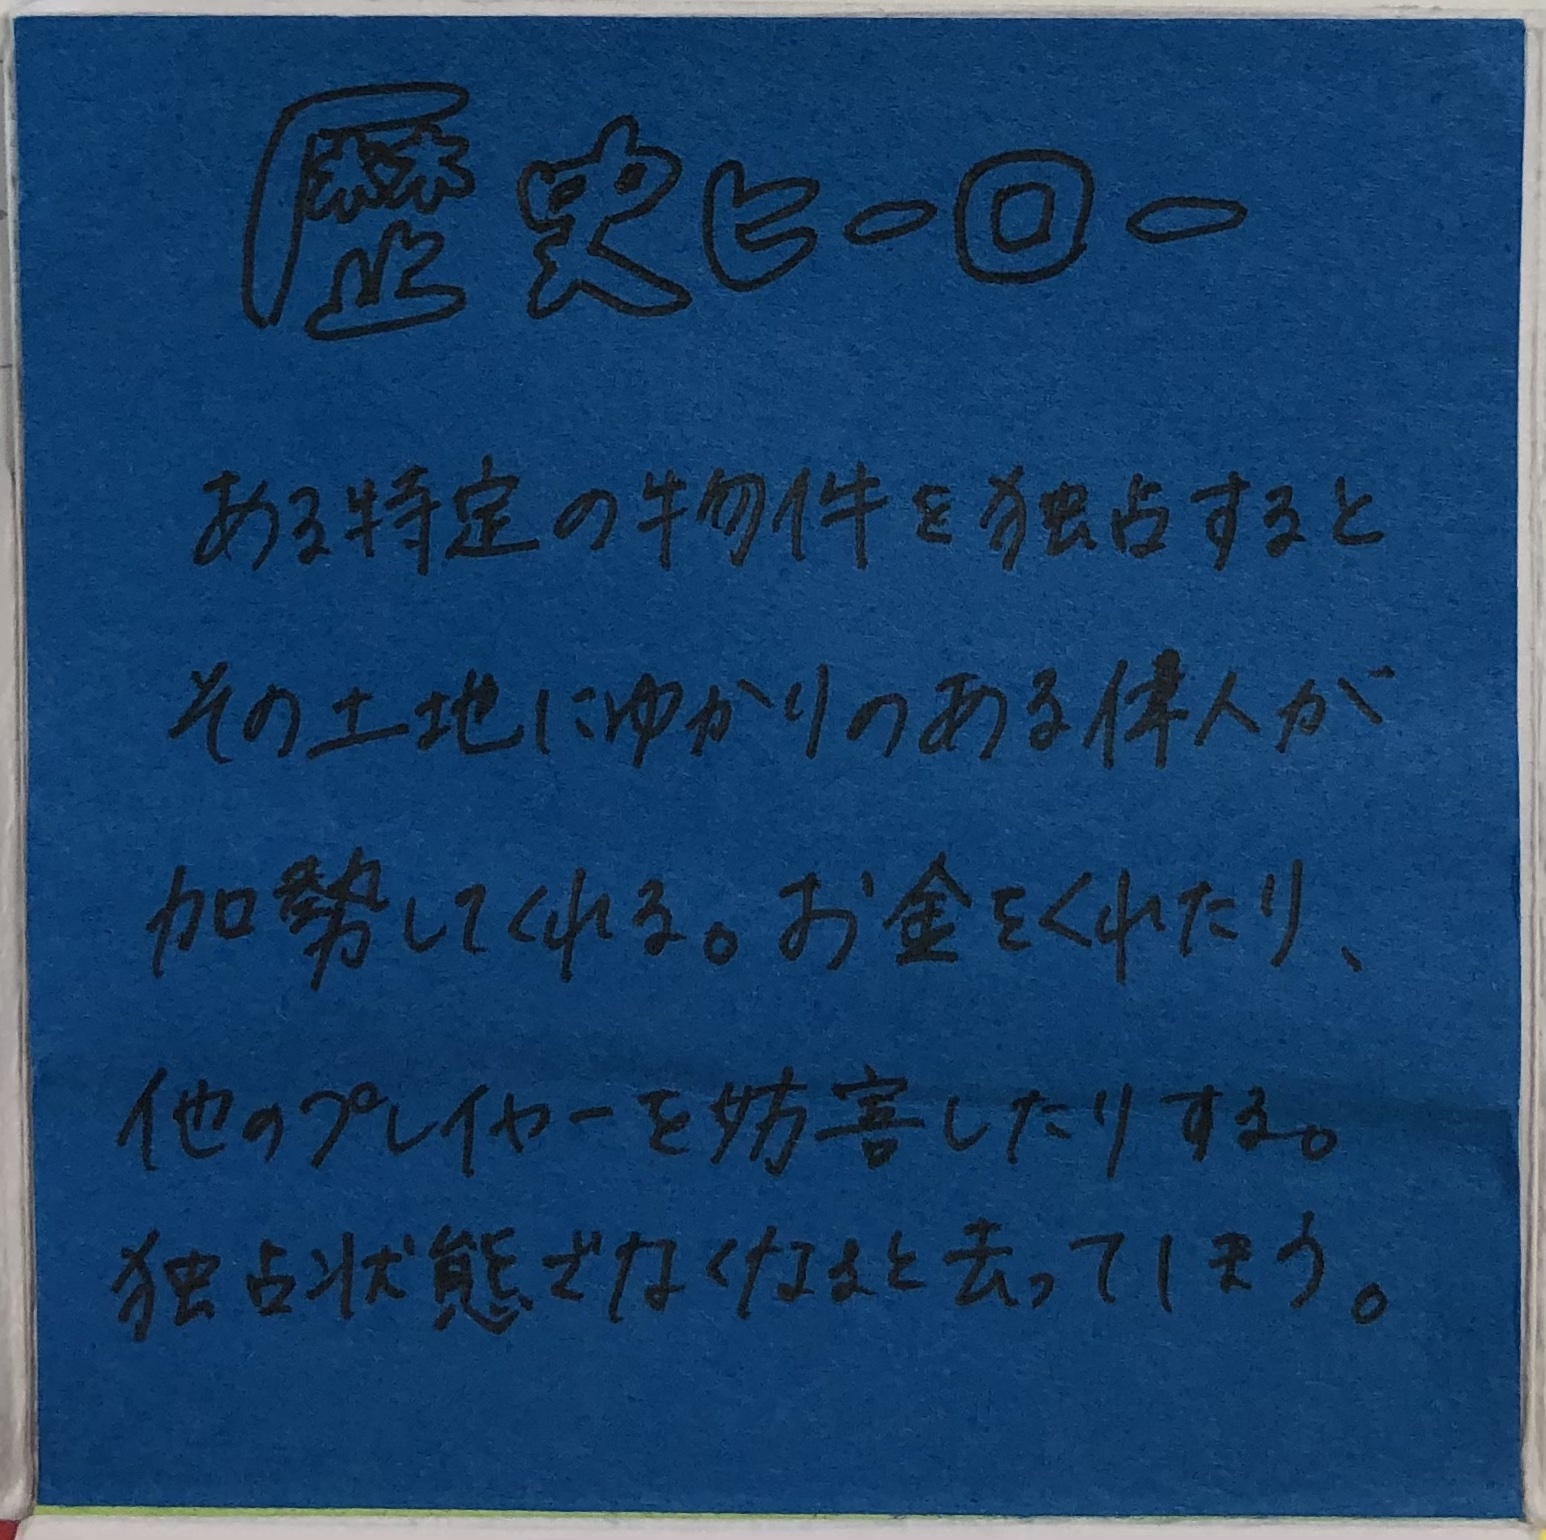 歴史ヒーロー
ある特定の物件を独占すると
その土地にゆかりのある偉人が
加勢してくれる。お金をくれたり、
他のプレイヤーを妨害したりする。
独占状態でなくなると去ってしまう。